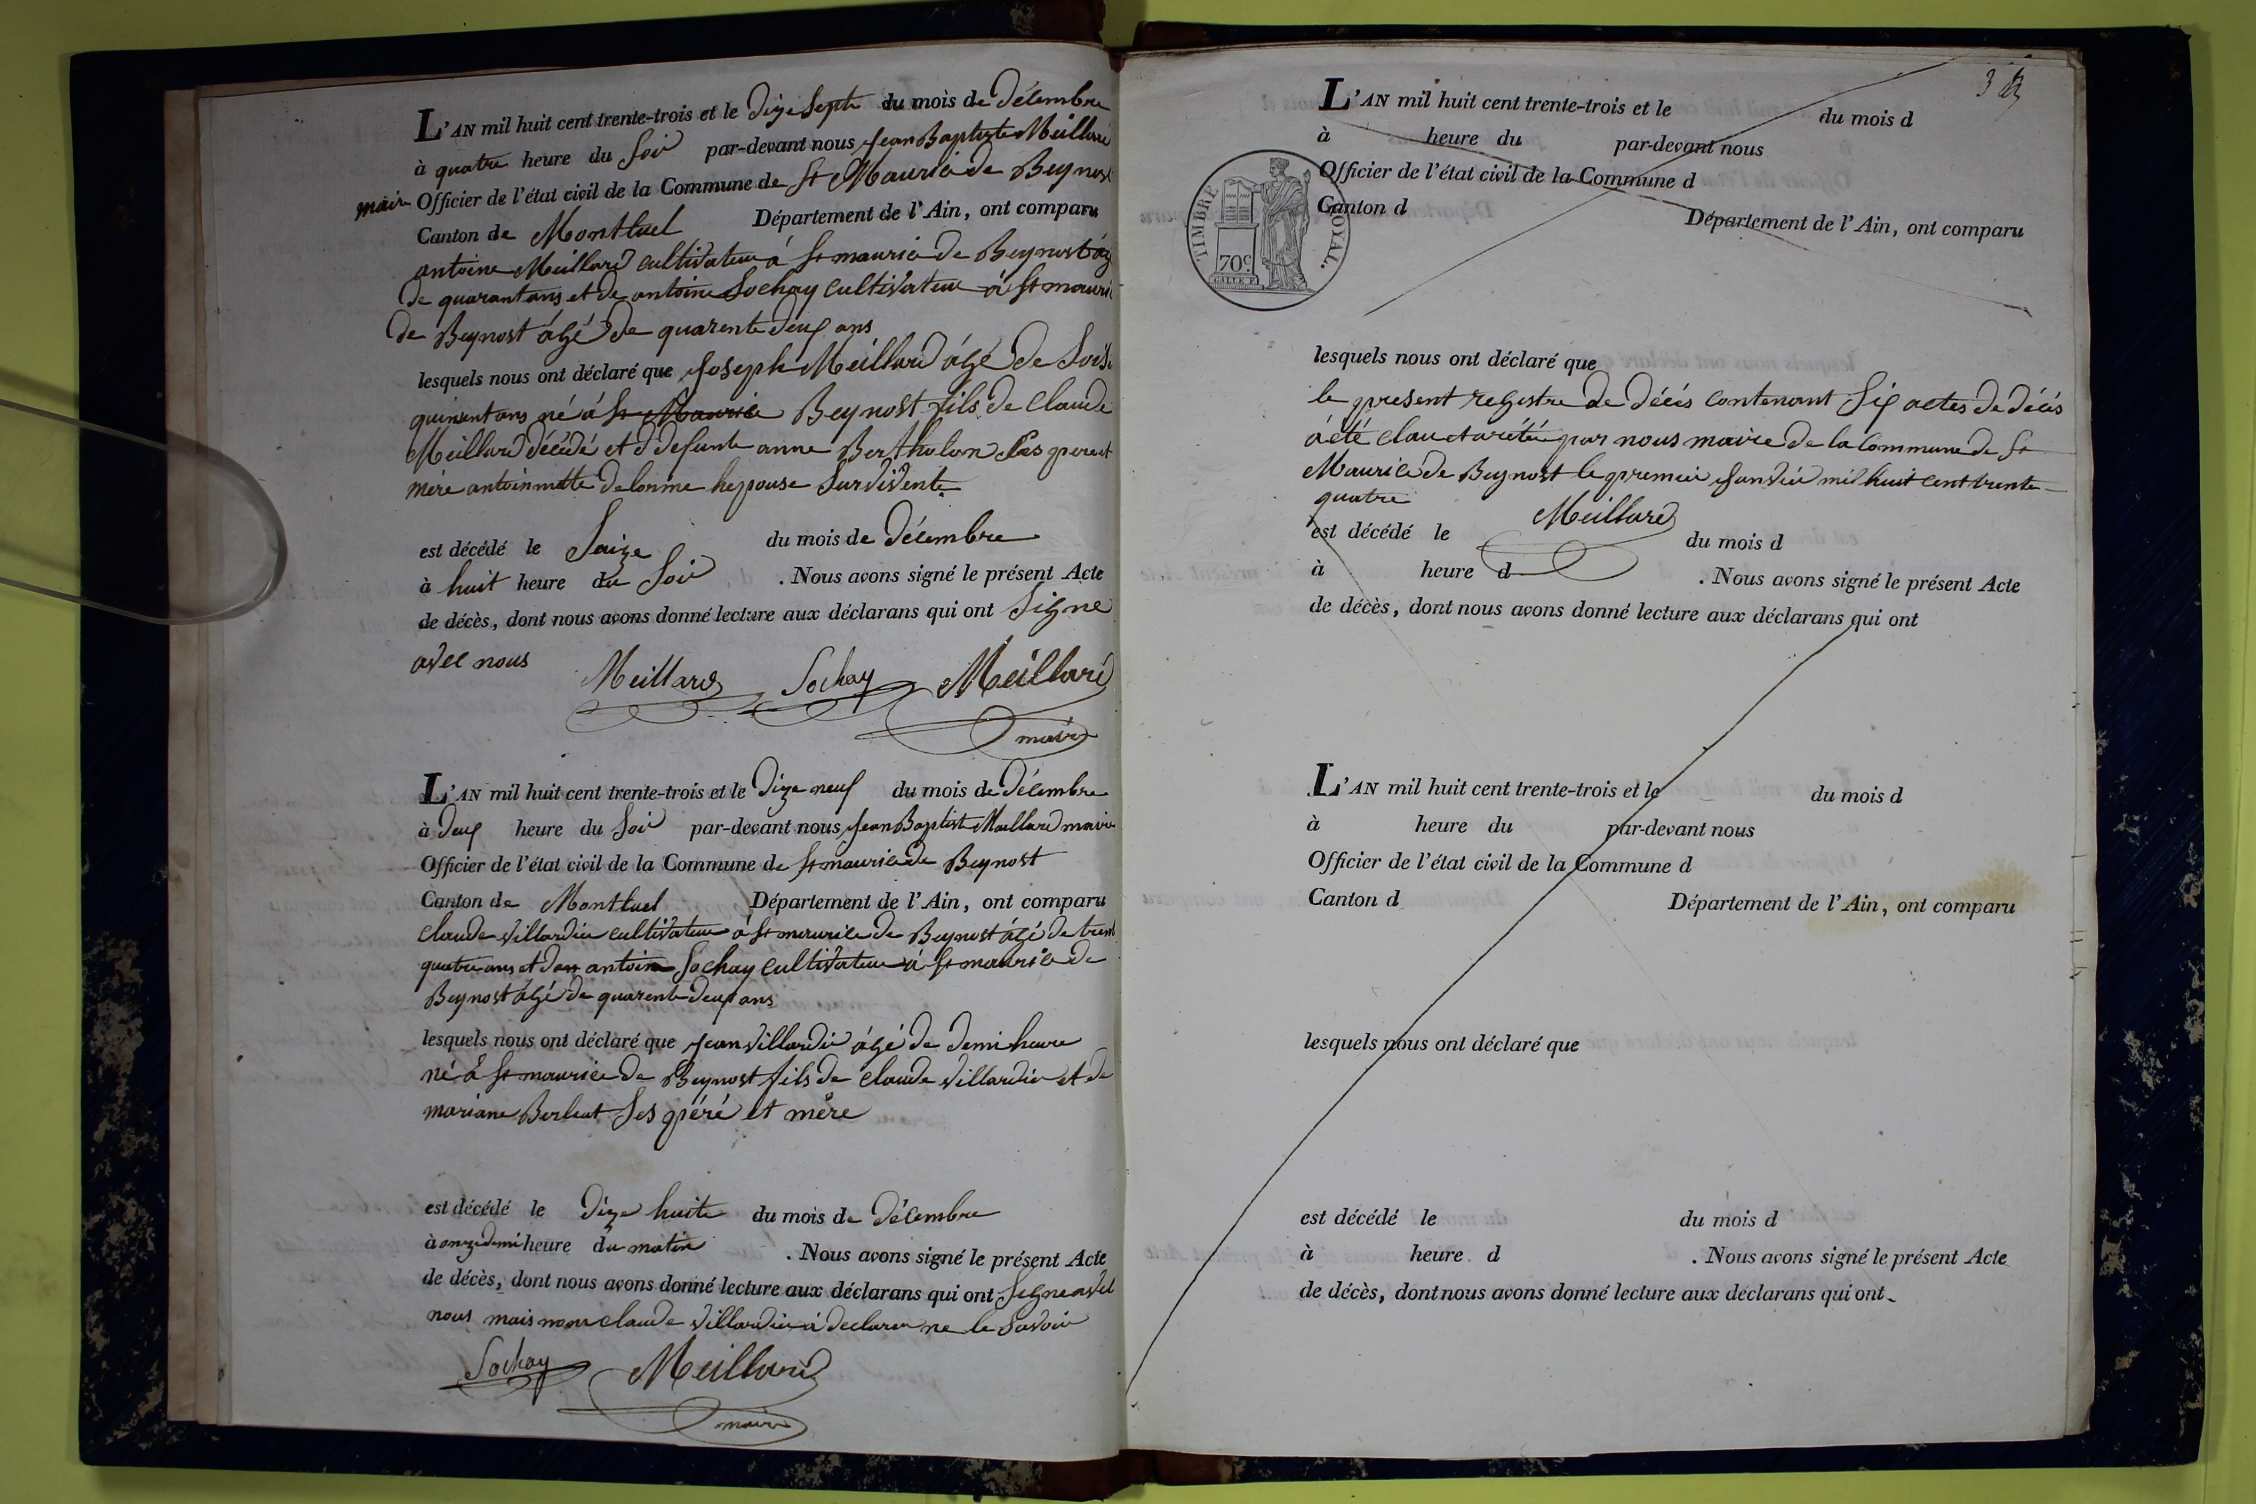 L'AN mil huit cent trente-trois et le dize septe du mois de décembre
à quatre heure du soir par-devant nous Jean Baptiste Meillard
maire Officier de l'état civil de la Commune de St Maurice de Beynost
Canton de Montluel Département de l'Ain, ont comparu
antoine Meillard cultivateur á St maurice de Beynost ág
de quarant ans et de antoine Sochay cultivateur á St mauri
de Beynost ágé de quarente deux ans
lesquels nous ont déclaré que Joseph Meillard ágé de
quinent ans né á St Maurice Beynost fils de Claude
Meillard décédé et d defunte anne Bertholon pere et
mère antoinnette Delorme hepouse survivente
est décédé le Saize du mois de décembre
à huit heure du soir . Nous avons signé le présent Acte
de décès, dont nous avons donné lecture aux déclarans qui ont signe
avec nous
Meillard Sochay Meillard
maire
L'AN mil huit cent trente-trois et le dize neuf du mois de décembre
à deux heure du soir par-devant nous Jean Baptist Meillard maire
Officier de l'état civil de la Commune de St maurice de Beynost
Canton de Montluel Département de l'Ain, ont comparu
Claude Villardier cultivateur á St maurice de Beynost ágé de trent
quatre ans et dan antoine Sochay cultivateur á St maurice de
Beynost ágé de quarent deux ans
lesquels nous ont déclaré que Jean Villardier ágé de demi heure
né á St maurice de Beynost fils de Claude Villardier et de
mariane Berleat ses péré et mère
est décédé le dize huite du mois de décembre
à onze demi heure du matin . Nous avons signé le présent Acte
de décès, dont nous avons donné lecture aux déclarans qui ont signe avec
nous mais non claude Villardier á declarer ne le savoir
Sochay Meillard
maire
3
L'AN mil huit cent trente-trois et le du mois d
à heure du par-devant nous
Officier de l'état civil de la Commune d
Canton d Département de l'Ain, ont comparu
TIMBRE ROYAL.
70c
lesquels nous ont déclaré que
le present registre de décés contenant six actes de décés
a été clau et arété par nous maire de la Commune de St
Maurice de Beynost le premier Janvié mil huit cent trente
quatre
Meillard
est décédé le du mois d
à heure d . Nous avons signé le présent Acte
de décès, dont nous avons donné lecture aux déclarans qui ont
L'AN mil huit cent trente-trois et le du mois d
à heure du par-devant nous
Officier de l'état civil de la Commune d
Canton d Département de l'Ain, ont comparu
lesquels nous ont déclaré que
est décédé le du mois d
à heure d . Nous avons signé le présent Acte
de décès, dont nous avons donné lecture aux déclarans qui ont